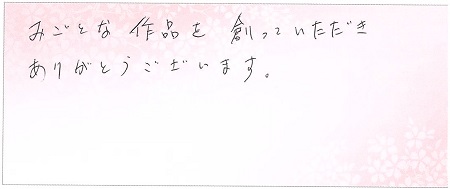 みごとな 作品を 創っていただき
ありがとうございます。